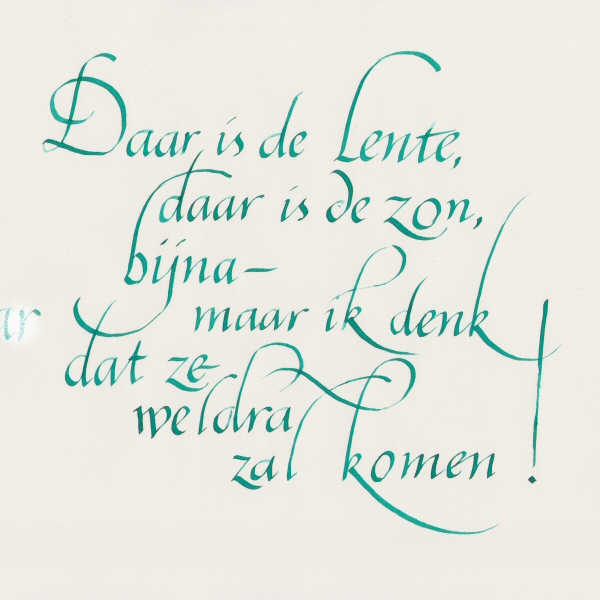 Daar is de Lente,
daar is de zon,
bijna—
maar ik denk
dat ze
weldra
zal komen!